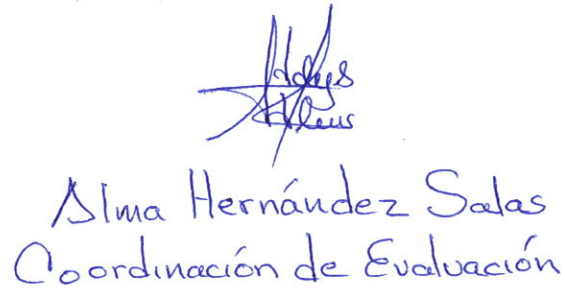 Alma Hernández Salas
Coordinación de Evaluación